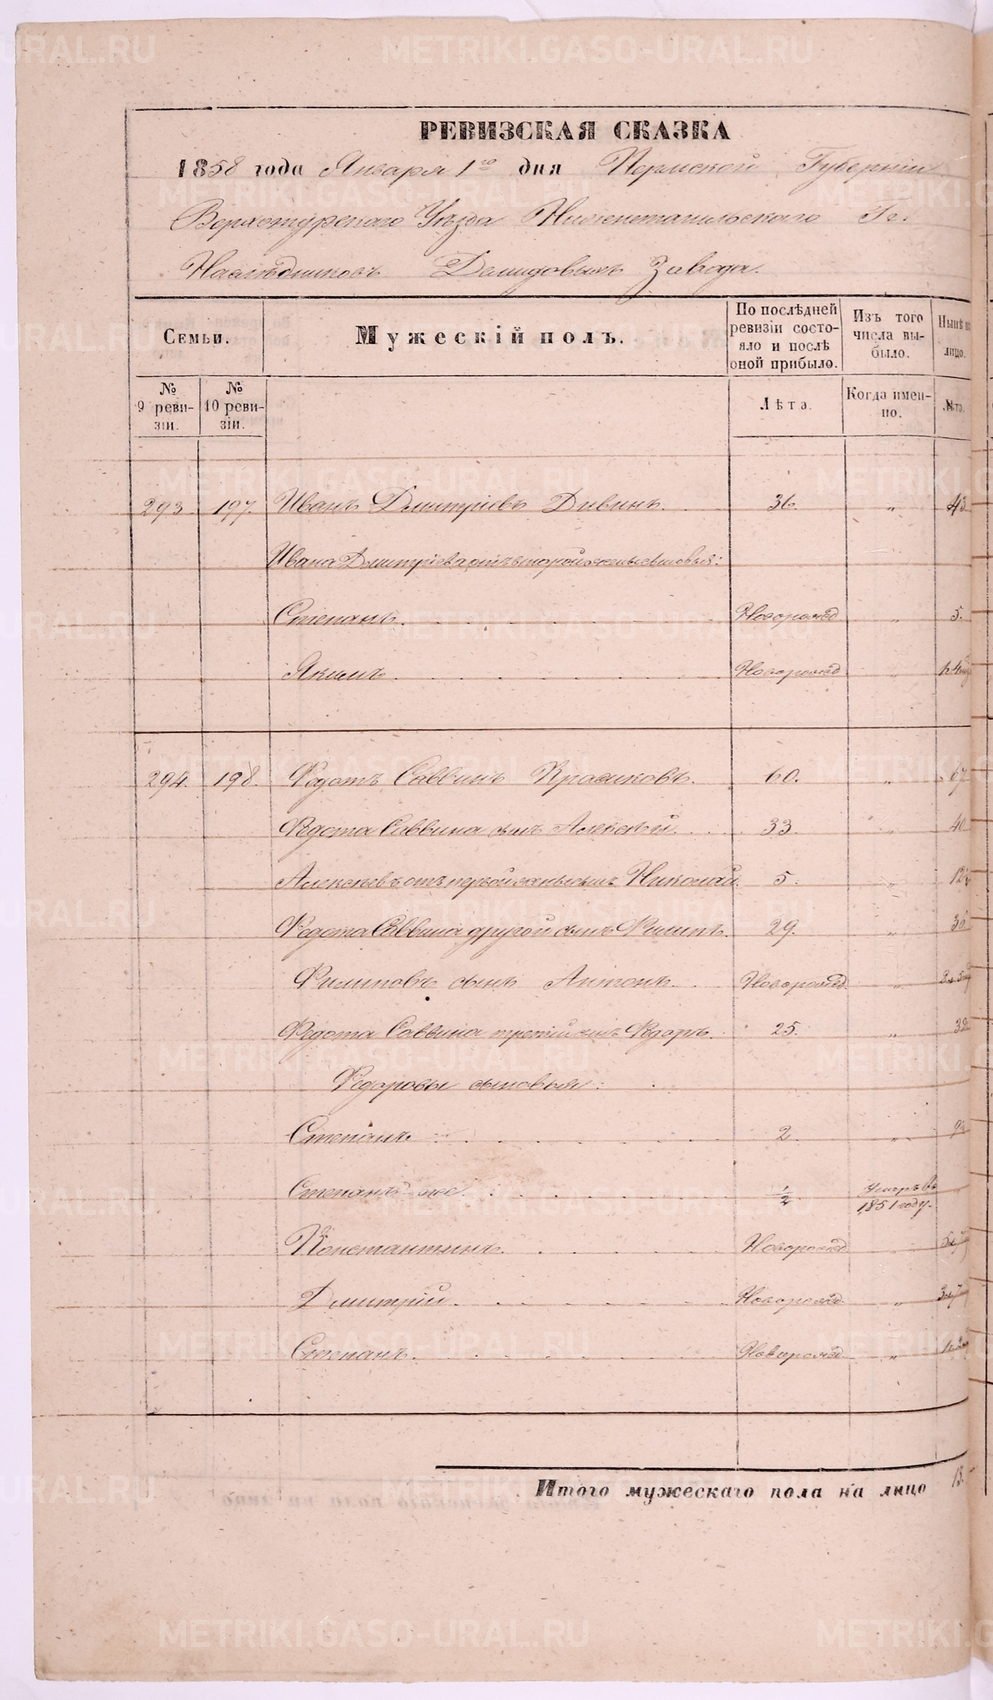 РЕВИЗСКАЯ СКАЗКА
1858 года Января 1го дня Пермской Губернии
Верхотурскаго Уѣзда Нижнетагильскаго Гг.
Наслѣдниковъ Демидовыхъ Завода.
Семьи.
Мужескій полъ.
По послѣдней ревизіи состояло и послѣ оной прибыло.
Изъ того числа выбыло.
Нынѣ на лицо.
№ 9 ревизіи.
№ 10 ревизіи.
Лѣта.
Когда именно.
Лѣта.
293. 197. Иванъ Дмитріевъ Дивинъ. 36. " 43
Ивана Дмитріева отъ второй жены сыновья:
Степанъ. Новорожд " 5.
Якимъ. Новорожд "
294. 198. Федотъ Саввинъ Красиковъ. 60. " 67
Федота Саввина сынъ Алексѣй. 33. " 40
Алексѣевъ отъ первой жены сынъ Николай 5. " 12
Федота Саввина другой сынъ Филипъ. 29. " 36
Филиповъ сынъ Антонъ. Новорожд "
Федота Саввина третій сынъ Федоръ. 25. " 32
Федоровы сыновья:
Степанъ 2. " 9
Степанъ же. 1/2 умеръ въ 1851 году.
Константинъ. Новорожд
Дмитрій. Новорожд "
Степанъ. Новорожд "
Итого мужескаго пола на лицо 13.
METRIKI.GASO-URAL.RU